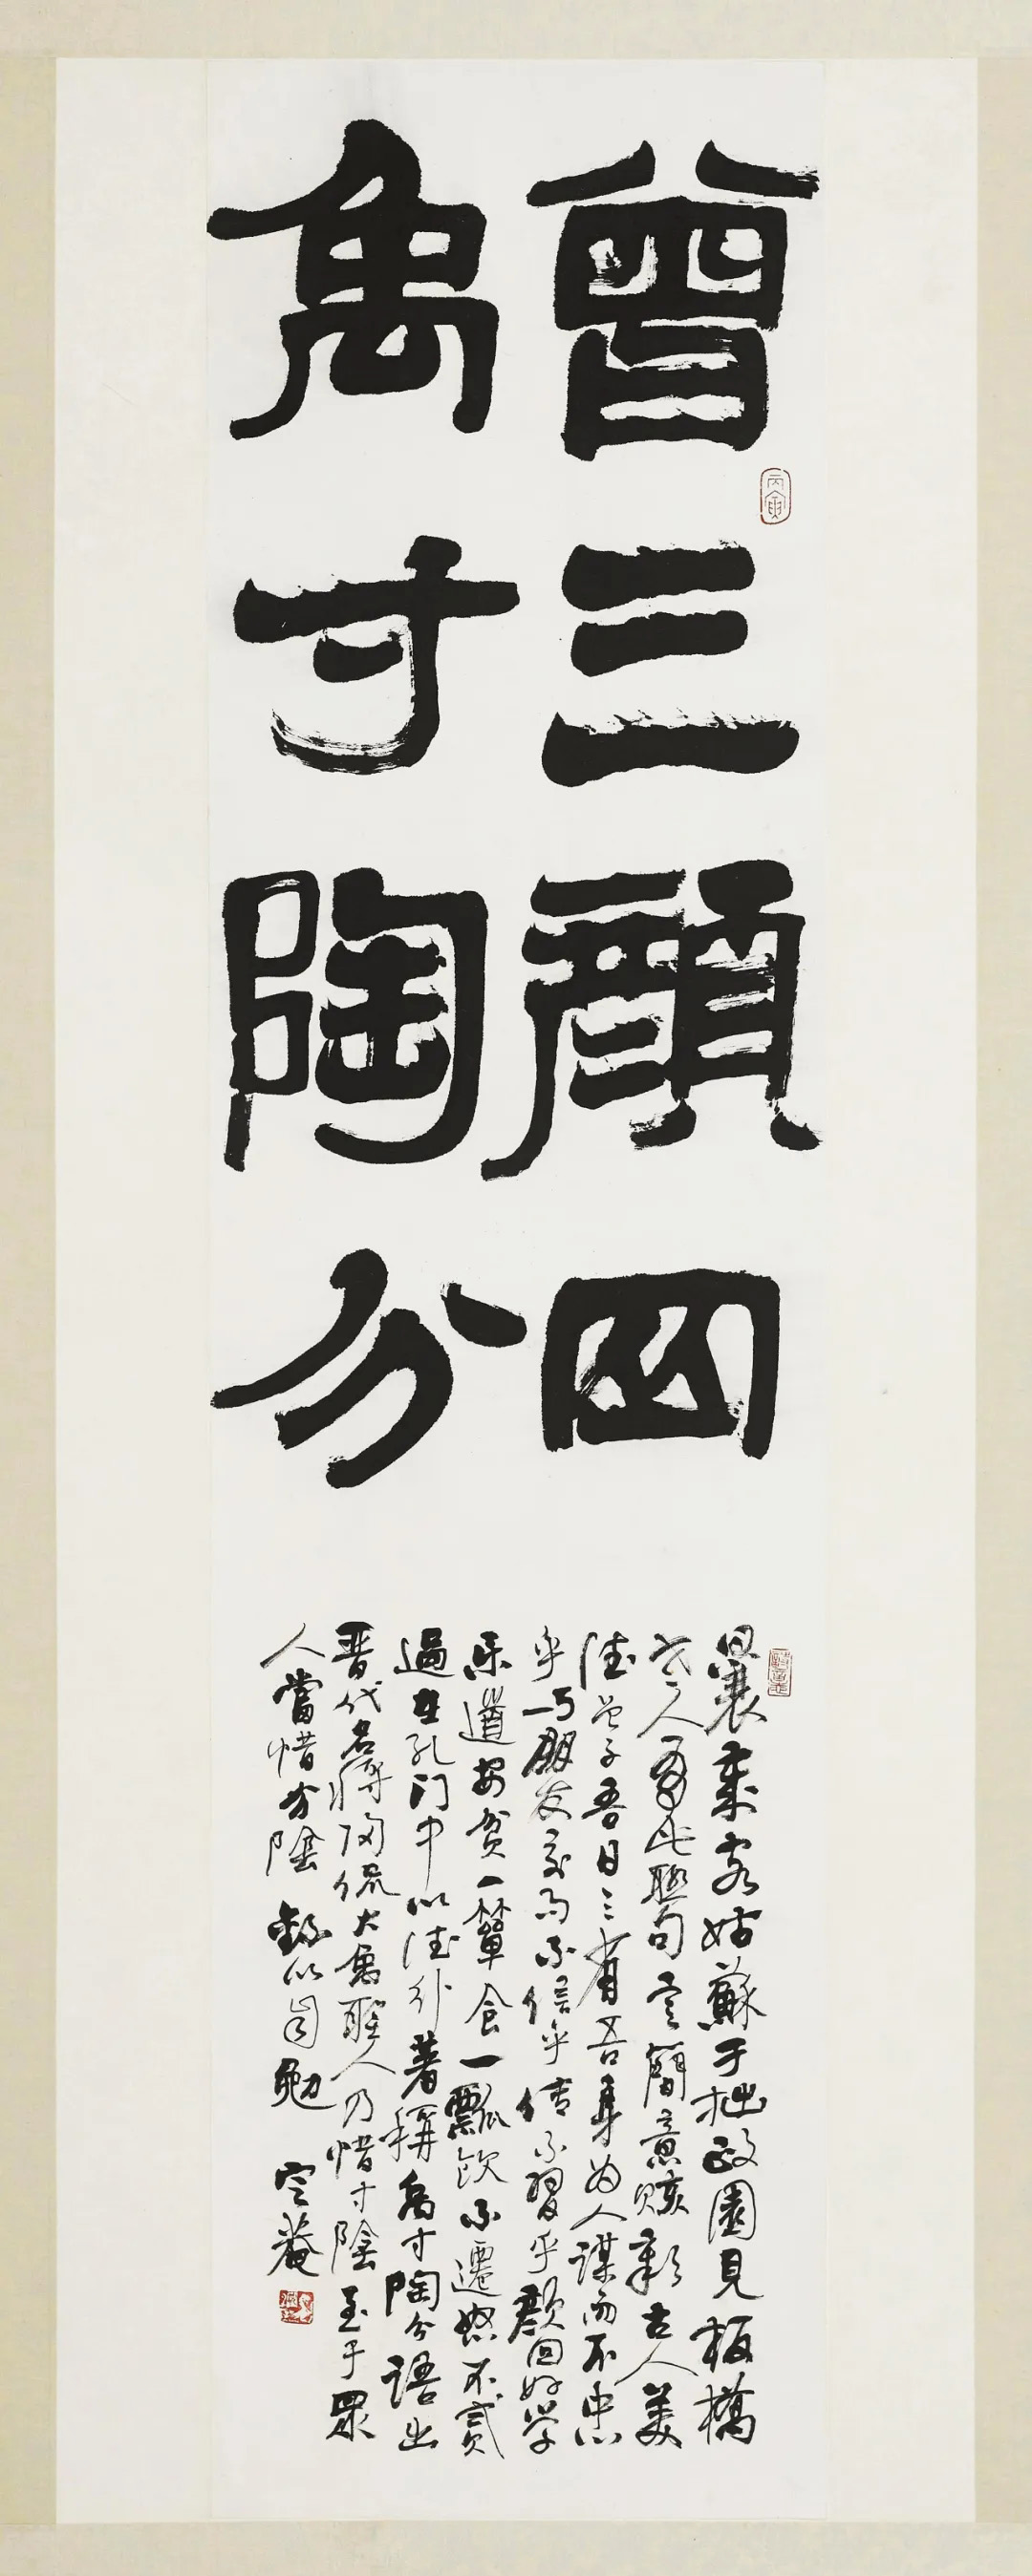 曾三顏四
禹寸陶分
曩乘客姑蘇于拙政園見板橋
老人有此聯句言簡意賅彰古人美
德曾子吾日三省吾身為人謀而不忠
乎與朋友交而不信乎傳不習乎顏回好学
乐道安貧一簞食一瓢飲不遷怒不貳
過在孔门中以德行著稱禹寸陶分語出
晋代名將陶侃大禹聖人乃惜寸陰至于眾
人當惜分陰 録以自勉 定菴
丙寅